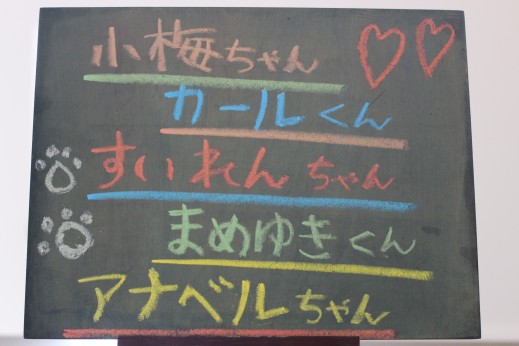 小梅ちゃん
カールくん
すいれんちゃん
まめゆきくん
アナベルちゃん